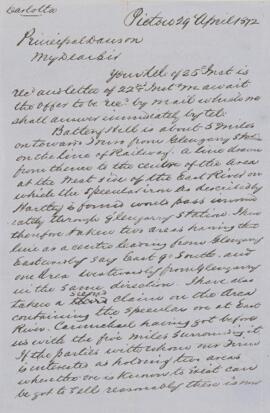 Carlotta
Pictou 29 April 1872
Principal Dawson
My Dear Sir
Your tel of 25 Inst is
rec'd as letter of 22nd Inst we await
the offer to be rec'd by mail which we
shall answer immediately by tel:
Battery Hill is about 5 Miles
on towards Truro from Glengarry Station
on the line of Railway. A line drawn
from thence to the centre of the Area
at the East side of the East River on
which the Specular iron as described by
Hartley is found would pass
through Glengarry Station. I have
therefore taken two areas having the
line as a centre leading from Glengarry
Eastwardly say East 9° South, and
one Area westwardly from Glengarry
in the same direction. I have also
taken a claim on the Area
containing the Specular ore on East
River. Carmichael having got before
us with the five Miles surrounding it
If the parties with whom our friend
is interested as holding two areas
where the ore is known to exist can
be got to sell reasonably there is no